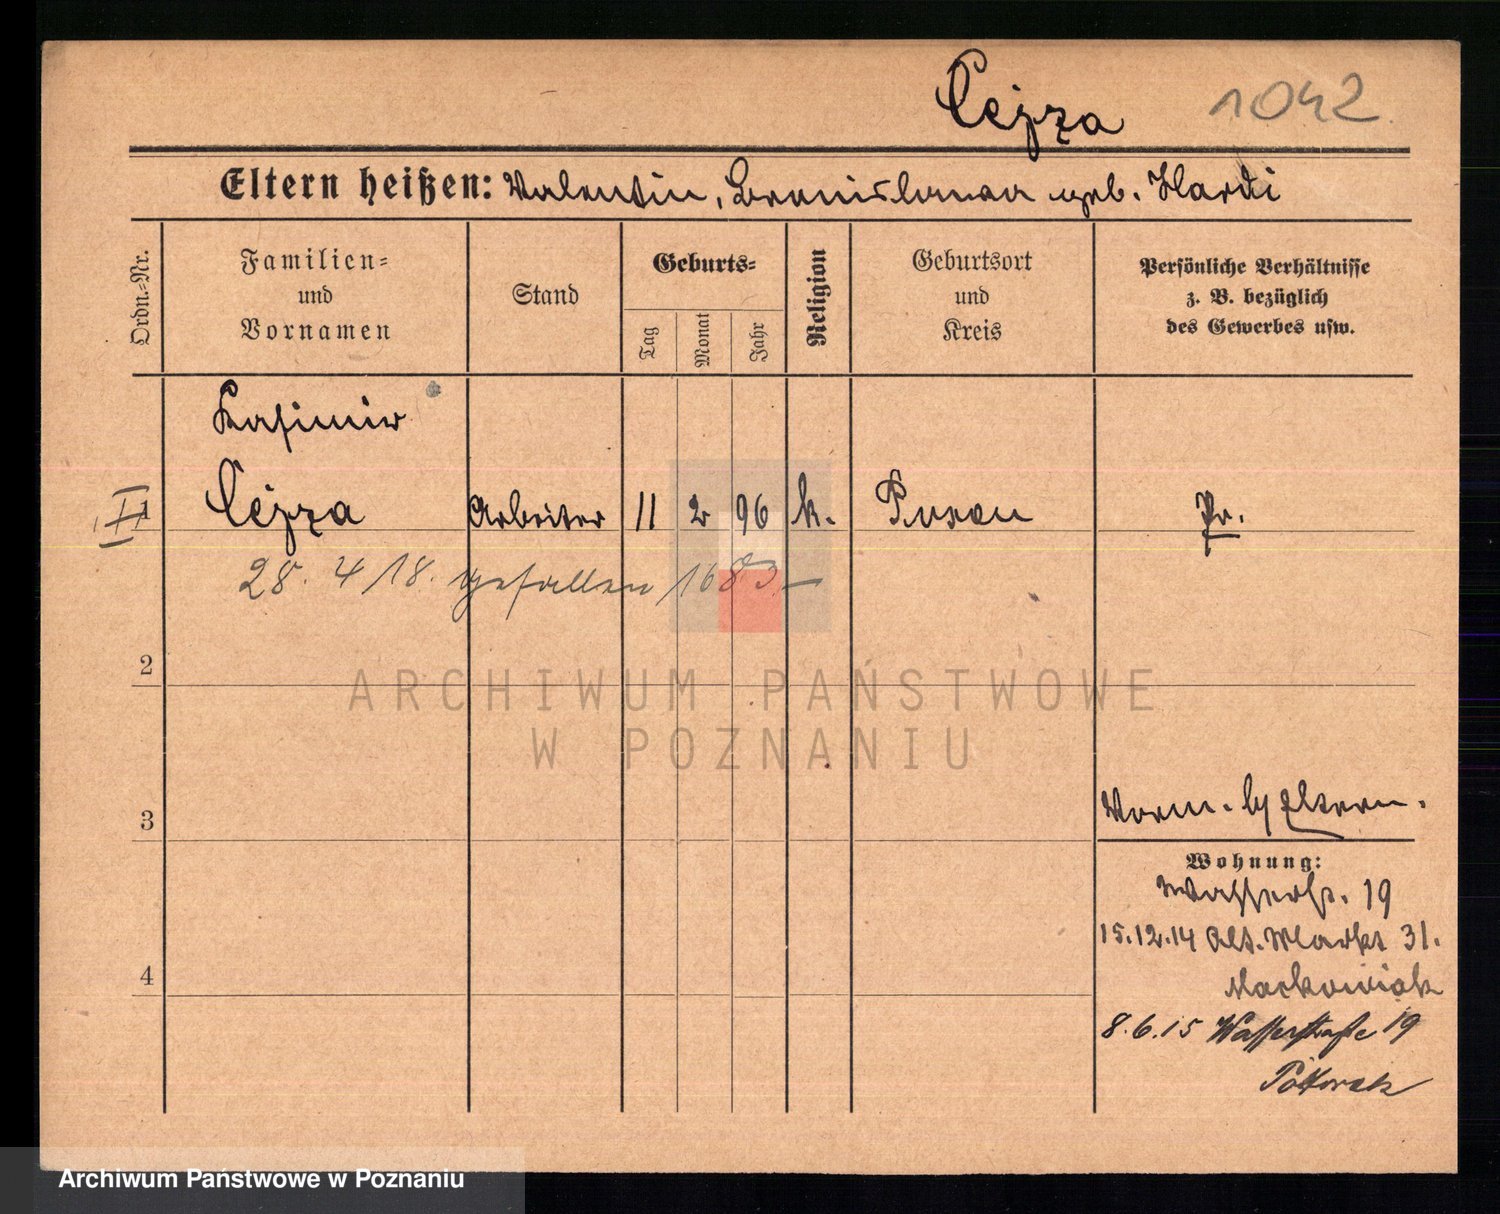 Cejza 1042.
Eltern heißen: Valentin, Bronislawa geb. Hardi
Ordn.=Nr.
Familien=
und
Vornamen
Stand
Geburts=
Tag
Monat
Jahr
Religion
Geburtsort
und
Kreis
Persönliche Verhältnisse
z. B. bezüglich
des Gewerbes usw.
Kasimir
1 Cejza Arbeiter 11 2 96 k. Posen Pr.
28. 4 18. gefallen 1683
2
ARCHIWUM PAŃSTWOWE
W POZNANIU
3
Vorm. Eltern.
Wohnung:
Wasserstr. 19
15.12.14 Alt. Markt 31.
Mackowiak
4
8.6.15 Wasserstraße 19
Archiwum Państwowe w Poznaniu